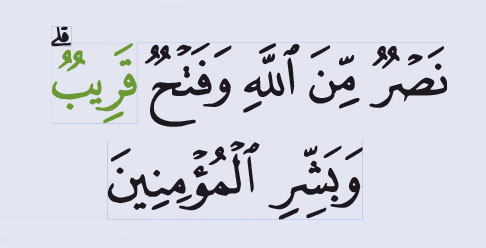 نَصۡرٌ مِّنَ ٱللَّهِ وَفَتۡحٌ قَرِيبٌۗ
وَبَشِّرِ ٱلۡمُؤۡمِنِينَ